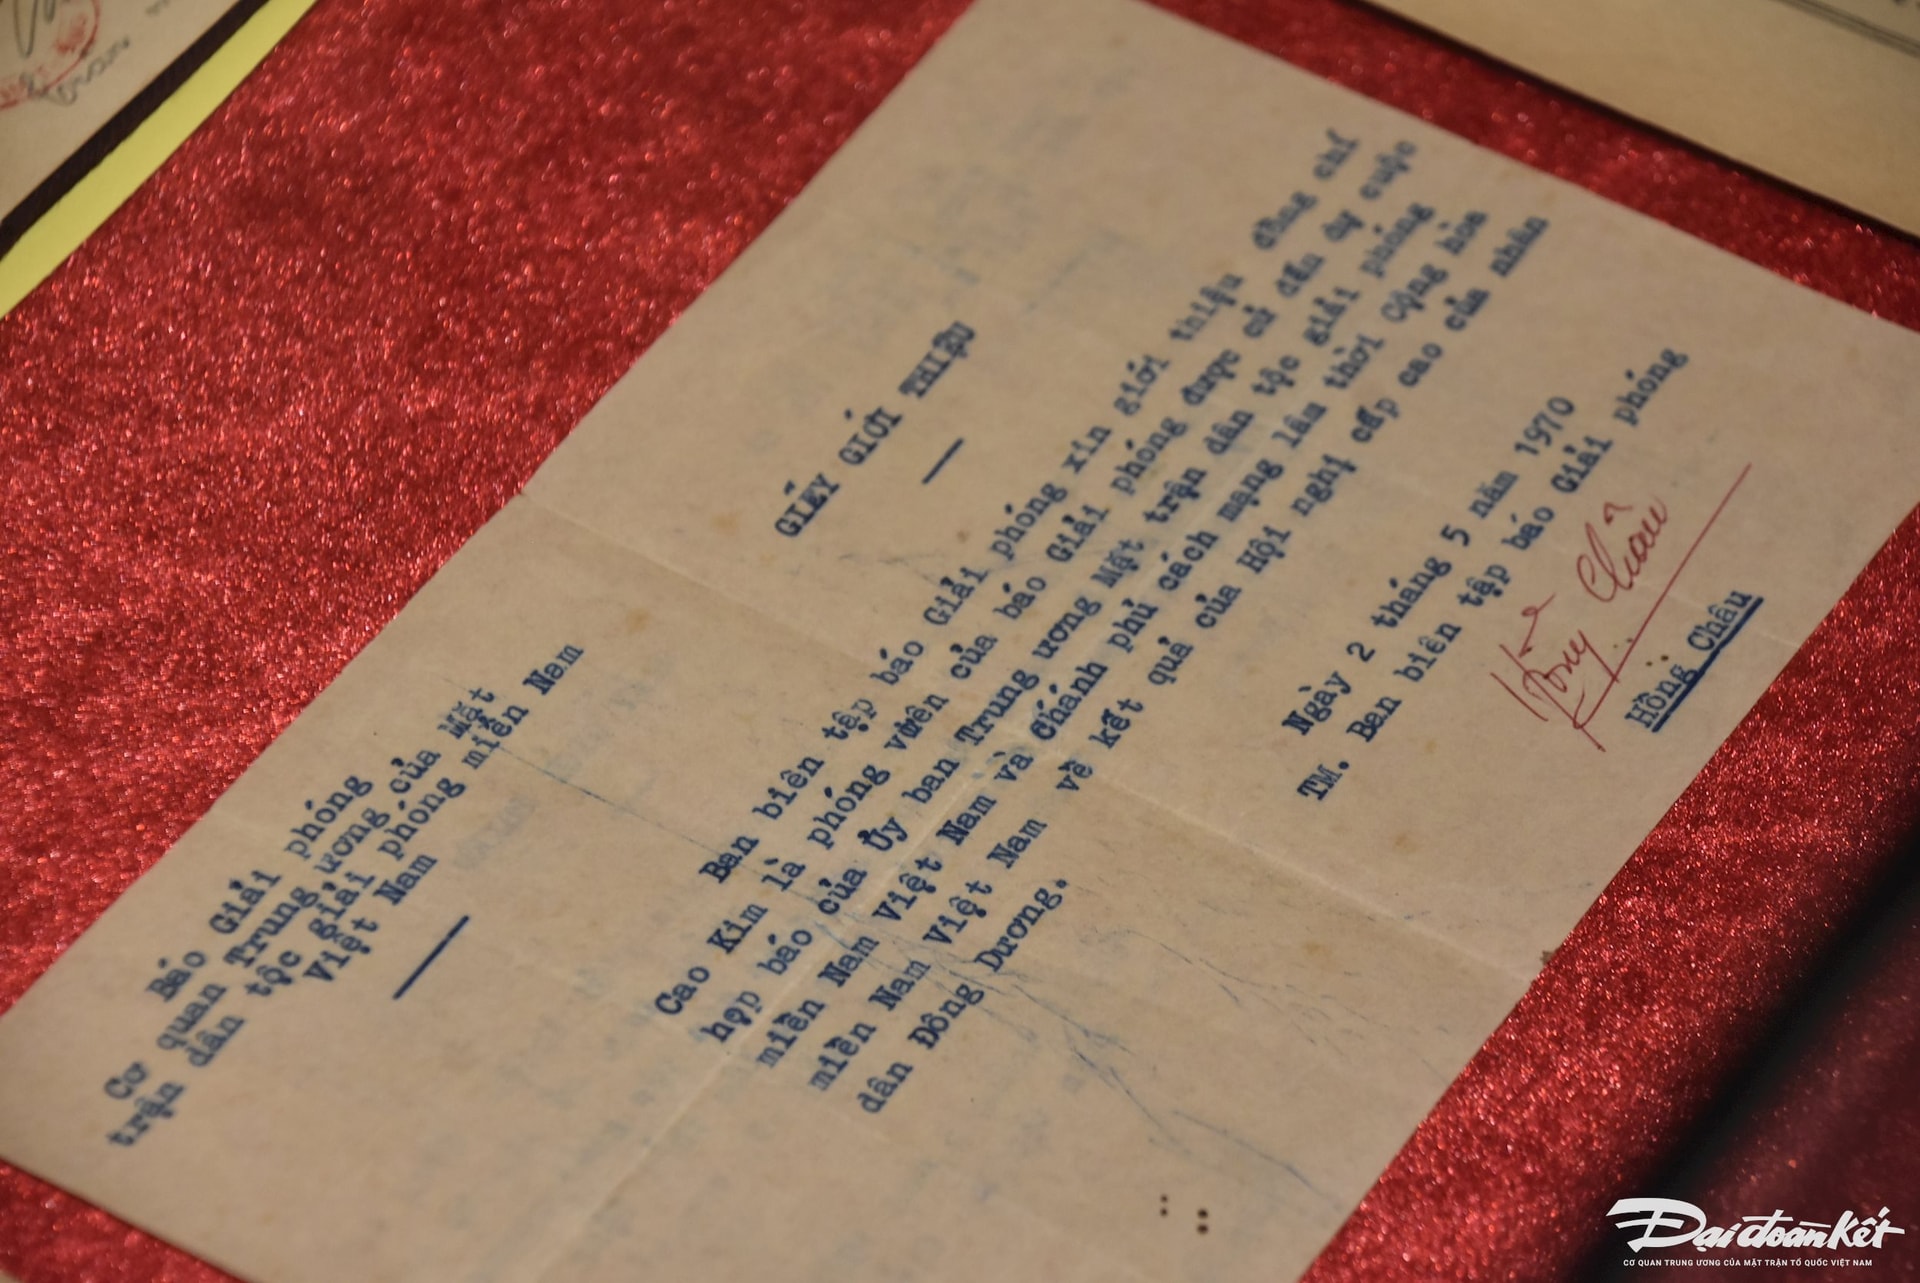 Báo Giải phóng
Cơ quan Trung ương của Mặt
trận dân tộc giải phóng miền Nam
Việt Nam
GIẤY GIỚI THIỆU
Ban biên tập báo Giải phóng xin giới thiệu đồng chí
Cao Kim là phóng viên của báo Giải phóng được cử đến dự cuộc
họp báo của Ủy ban Trung ương Mặt trận dân tộc giải phóng
miền Nam Việt Nam và Chánh phủ cách mạng lâm thời Cộng hòa
miền Nam Việt Nam về kết quả của Hội nghị cấp cao của nhân
dân Đông Dương.
Ngày 2 tháng 5 năm 1970
TM. Ban biên tập báo Giải phóng
Hồng Châu
Hồng Châu
Đại đoàn kết
CƠ QUAN TRUNG ƯƠNG CỦA MẶT TRẬN TỔ QUỐC VIỆT NAM